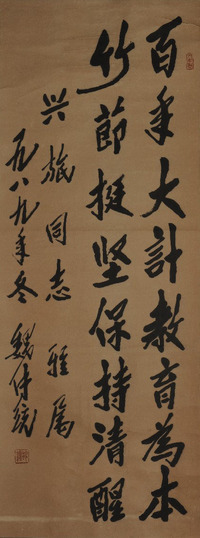 百年大計教育為本
竹節挺坚保持清醒
兴旅同志 雅属
一九八九年冬 魏传统